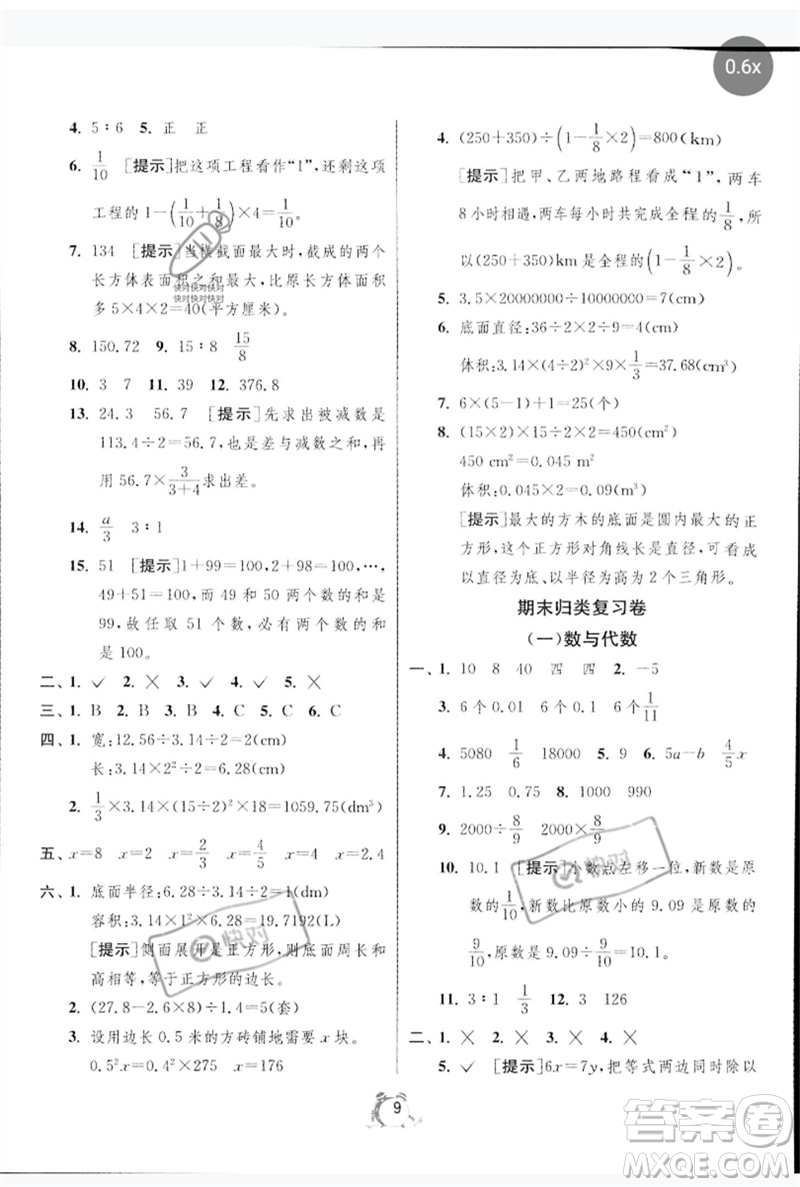 0.6x
4. 5∶6 5. 正 正
6. 1/10 [提示]把这项工程看作“1”,还剩这项
工程的 1−(1/10+1/8)×4=1/10。
7. 134 [提示]当横截面最大时,截成的两个
长方体表面积之和最大,比原长方体面积
多 5×4×2=40(平方厘米)。
快对快对快对
快对快对快对
8. 150.72 9. 15∶8 15/8
10. 3 7 11. 39 12. 376.8
13. 24.3 56.7 [提示]先求出被减数是
113.4÷2=56.7,也是差与减数之和,再
用 56.7×3/(3+4)求出差。
14. a/3 3∶1
15. 51 [提示]1+99=100,2+98=100,…,
49+51=100,没有 49 和 50 两个数的和是
100,故任取 51 个数,必有两个数的和
是 100。
二、1. ✓ 2. × 3. ✓ 4. ✓ 5. ×
三、1. B 2. B 3. B 4. C 5. B 6. C
四、1. 宽:12.56÷3.14÷2=2(cm)
长:3.14×2²÷2=6.28(cm)
2. 1/3×3.14×(15÷2)²×18=1059.75(dm³)
五、x=8 x=2/3 x=4/5 x=4 x=2.4
六、1. 底面半径:6.28÷3.14÷2=1(dm)
容积:3.14×1²×6.28=19.7192(L)
[提示]侧面展开是正方形,则底面周长和
高相等,等于正方形的边长。
2. (27.8−2.6×8)÷1.4=5(套)
3. 设用边长 0.5 米的方砖铺地需 x 块。
0.5²x=0.4²×275 x=176
4. (250+350)÷(1−1/8×2)=800(km)
[提示]把甲、乙两地路程看成“1”,两车
8 小时相遇,两车每小时共完成全程的1/8,所
以(250+350)km 是全程的(1−1/8×2)。
5. 3.5×20000000÷10000000=7(cm)
6. 底面直径:36÷2÷9×2=4(cm)
体积:3.14×(4÷2)²×9×1/3=37.68(cm³)
7. 6×(5−1)+1=25(个)
8. (15×2)×15÷2×2=450(cm²)
450 cm²=0.045 m²
体积:0.045×2=0.09(m³)
[提示]最大的方木的底面是圆内最大的正
方形,这个正方形对角线长是直径,面积是
以直径为底、以半径为高为 2 个三角形。
期末归类复习卷
(一)数与代数
一、1. 10 8 40 四 四 2. −5
3. 6 个 0.01 6 个 0.1 6 个 1/11
4. 5080 1/6 18000 5. 9 6. 5a−b 4/5x
7. 1.25 0.75 8. 150
9. 2000÷8/9 2000×8/9
10. 10.1 [提示]小数点左移一位,新数是原
数的1/10,新数比原数小 9.09 是原数的
9/10,原数是 9.09÷9/10=10.1。
11. 3∶1 1/3 12. 3 126
二、1. × 2. × 3. × 4. ×
5. ✓ [提示]6x=7y,把等式两边同时除以
快对
快对
9
答案卷
MXQE.COM